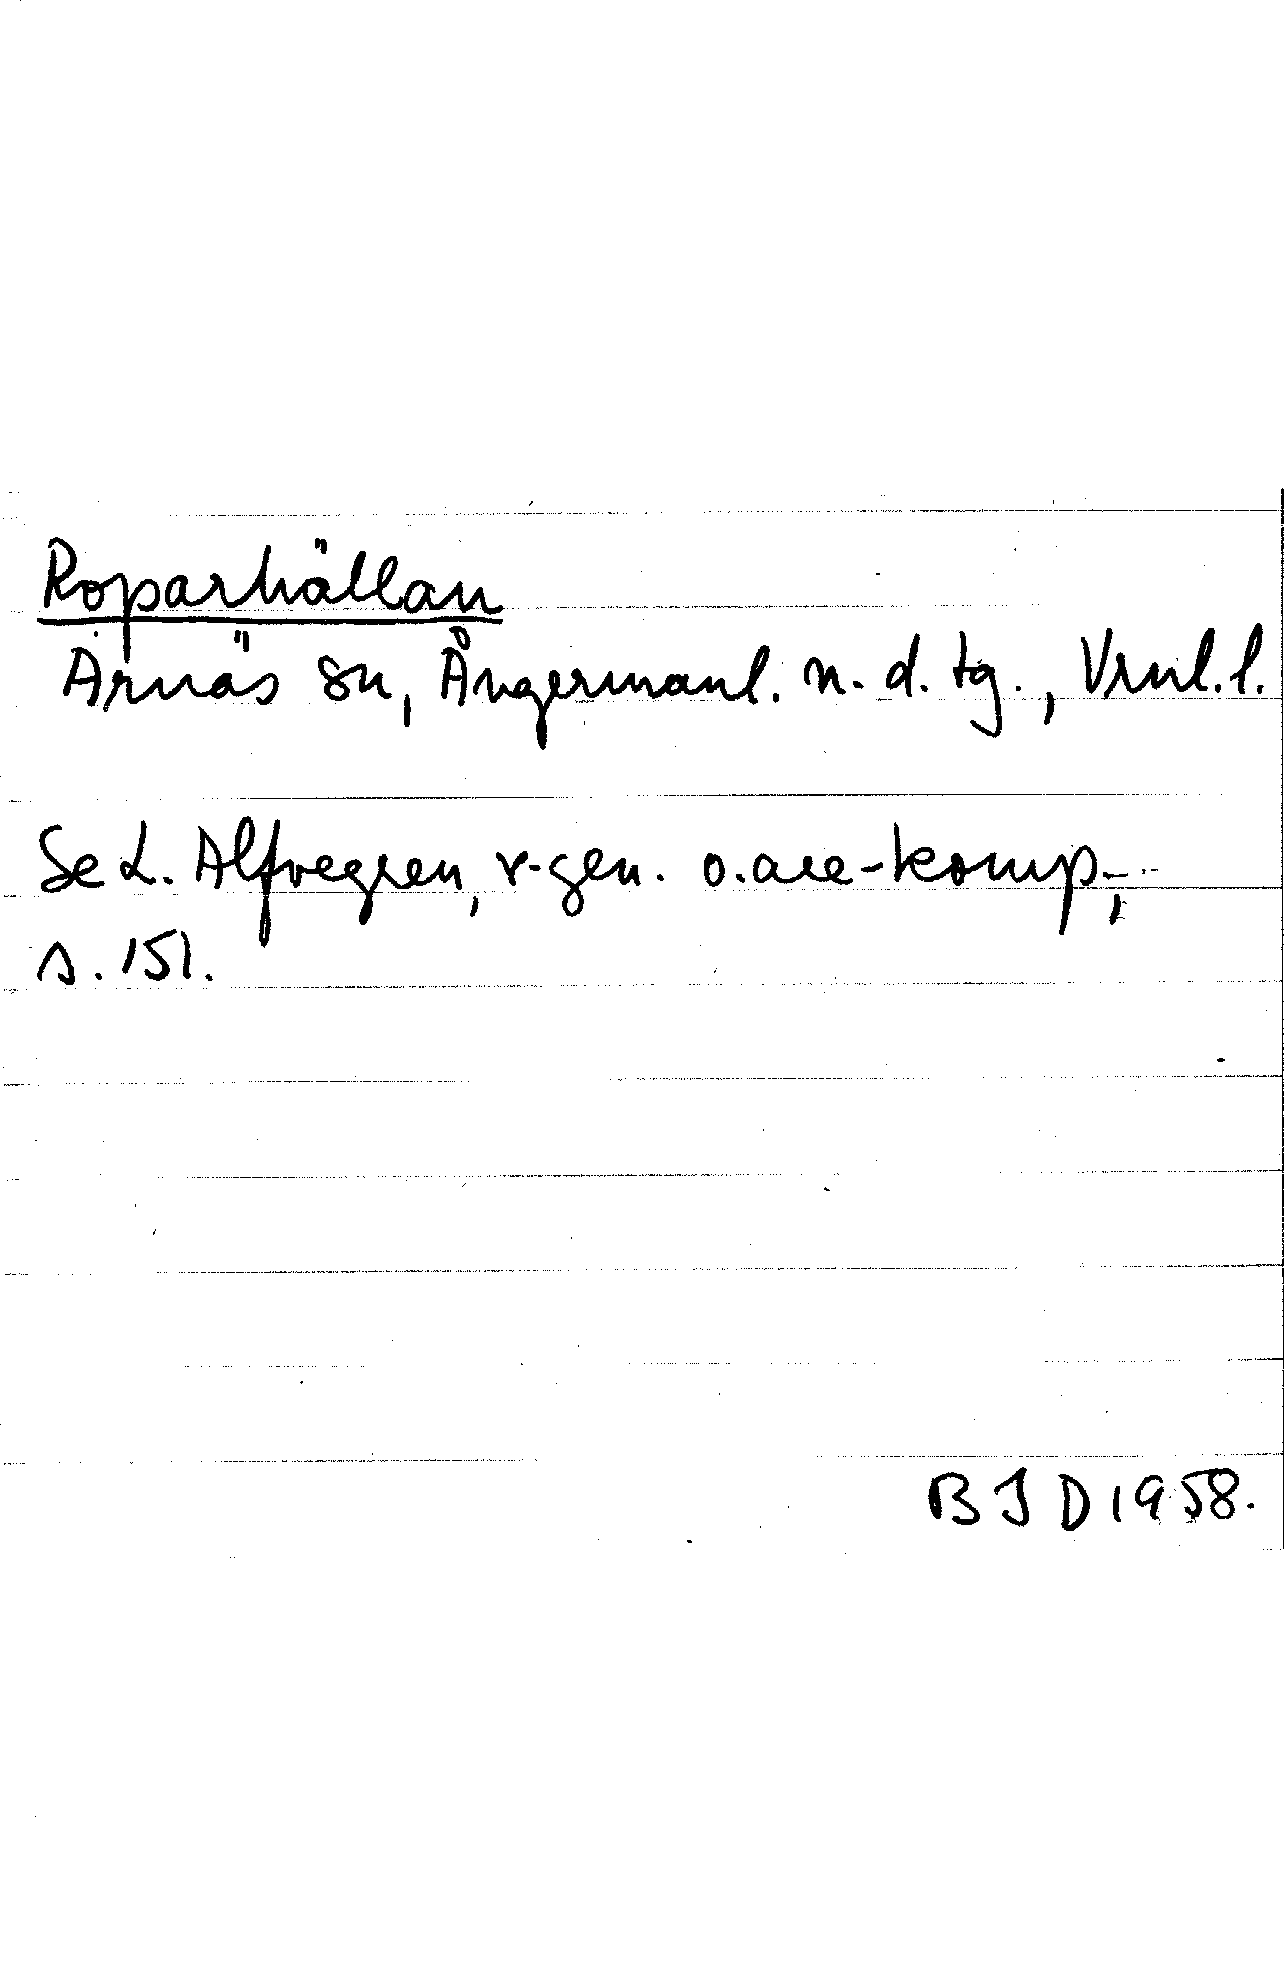 Roparhällan
Arnäs sn, Ångermanl. n. d. tg., Vrnl. l.
Se L. Alfvegren, r-gen. o. are-komp.,
s. 151.
B J D 1958.